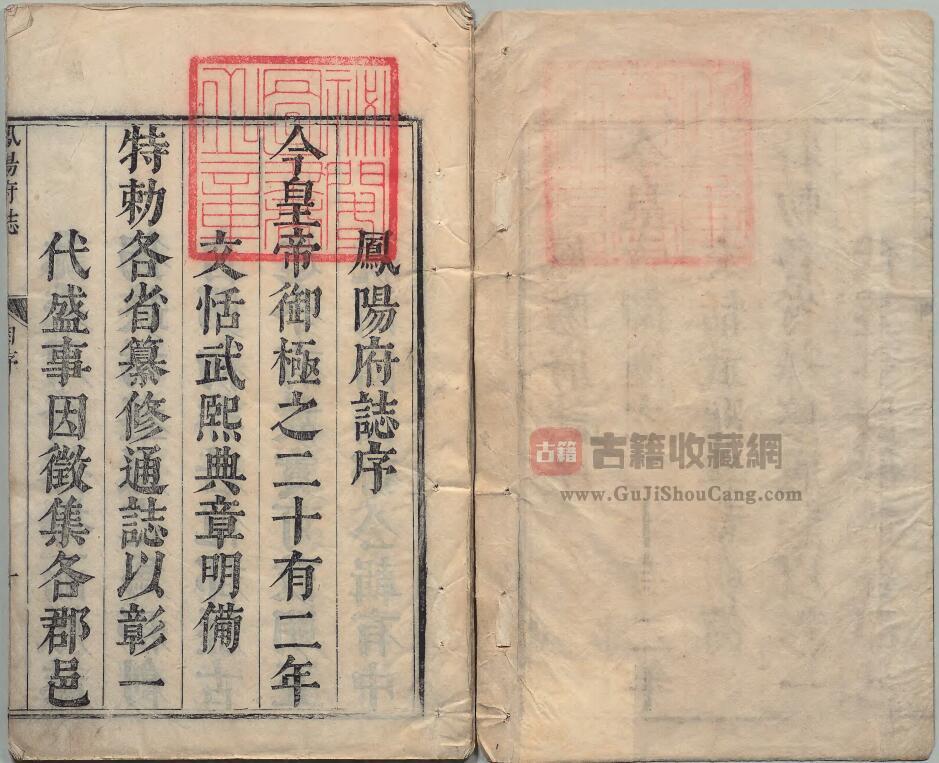 鳳陽府誌序
今皇帝御極之二十有二年
文恬武熙典章明備
特勅各省纂修通誌以彰一
代盛事因徵集各郡邑
鳳陽府誌
古籍
古籍收藏網
www.GuJiShouCang.com